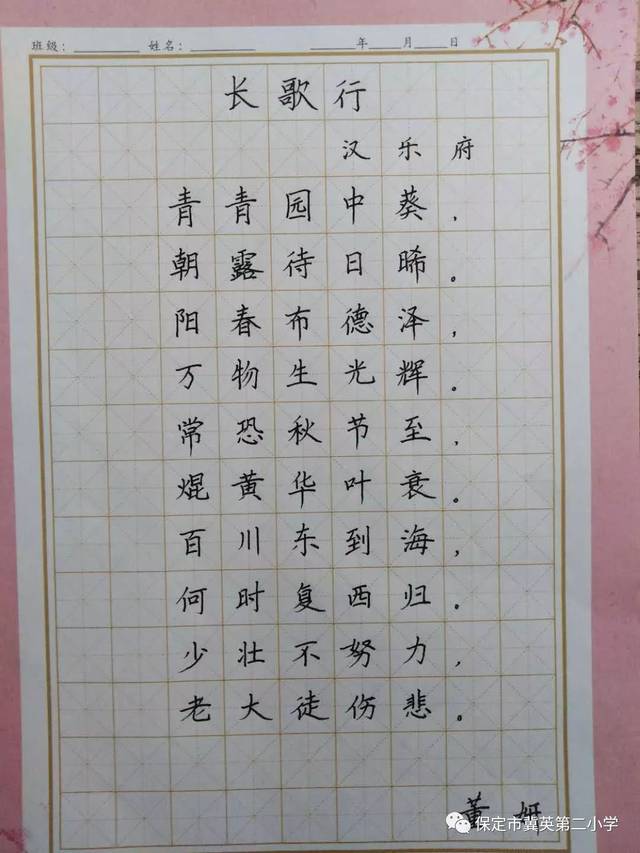 班级： 姓名： 年 月 日
长歌行
汉乐府
青青园中葵，
朝露待日晞。
阳春布德泽，
万物生光辉。
常恐秋节至，
焜黄华叶衰。
百川东到海，
何时复西归。
少壮不努力，
老大徒伤悲。
董妍
保定市冀英第二小学